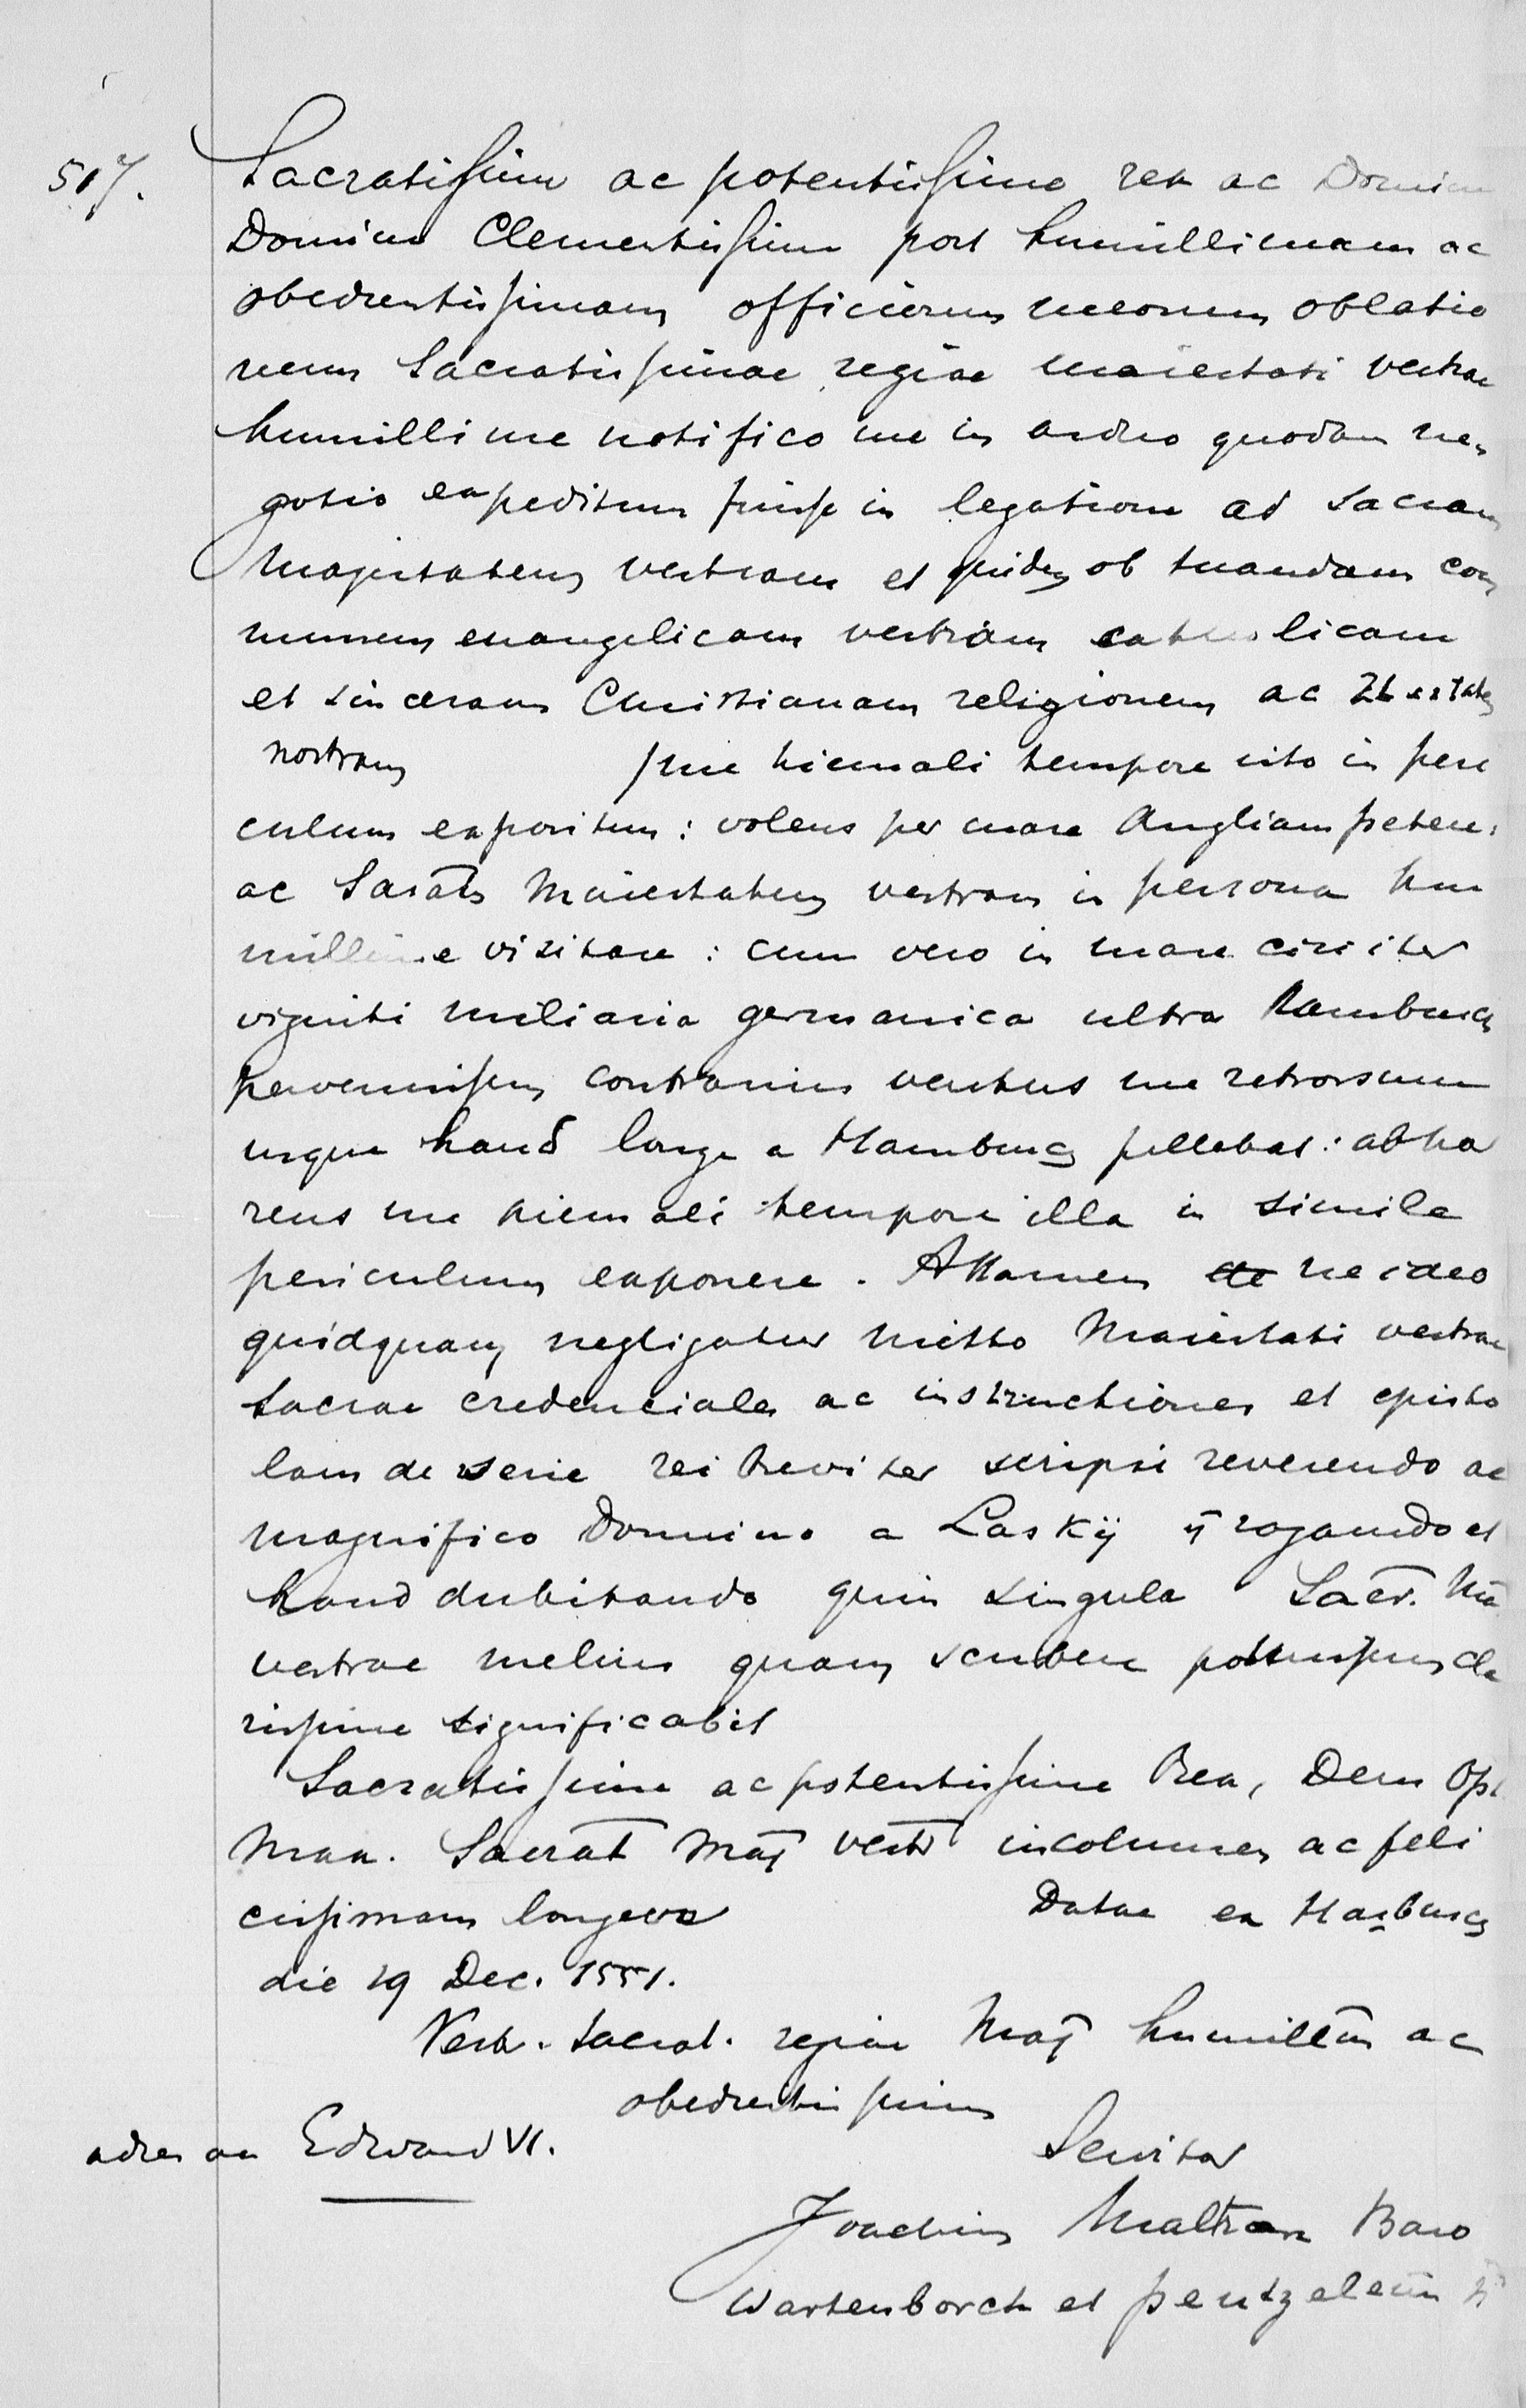 517. Sacratissime ac potentissime rex ac Domine
Domine Clementissime post humillimam ac
obedientissimam officiorum meorum oblatio
nem Sacratissimae regiae maiestati vestrae
humillime notifico me in arduo quodam ne
gotio expeditum fuisse in legatione ad sacram
Majestatem vestram et quidem ob tuandam com
munem euangelicam vestram catholicam
et sinceram Christianam religionem ac
nostram hiemali tempore isto in peri
culum expositum: volens per mare Angliam petere:
ac Sarāts Maiestatem vestram in persona hu
millime visitare: cum vero in mare circiter
viginti miliaria germanica ultra Hamburg
pervenissem contrarius ventus me retrorsum
usque haud longe a Hamburg pellebat: abho
rens me hiemali tempore illa in simile
periculum exponere. Attamen ne ideo
quidquam negligatur mitto Maiestati vestrae
sacrae credenciales ac instructiones et episto
lam de serie rei breviter scripsi reverendo ac
magnifico Domino a Laskij rogando et
haud dubitando quin singula Sacr. Ma
vestrae melius quam scribere potuissem cla
rissime significabit
Sacratissime ac potentissime Rex, Deus Opt
Max. Sacrat Maj vestr incolumen ac feli
cissimam longeva Datae ex Harburg
die 19 Dec. 1551.
Vestr. sacrat. regiae Maj humillim ac
obedientissimus
adres an Edward VI. Servitor
Joachim Maltzan Baro
Wartenborch et pentzelein